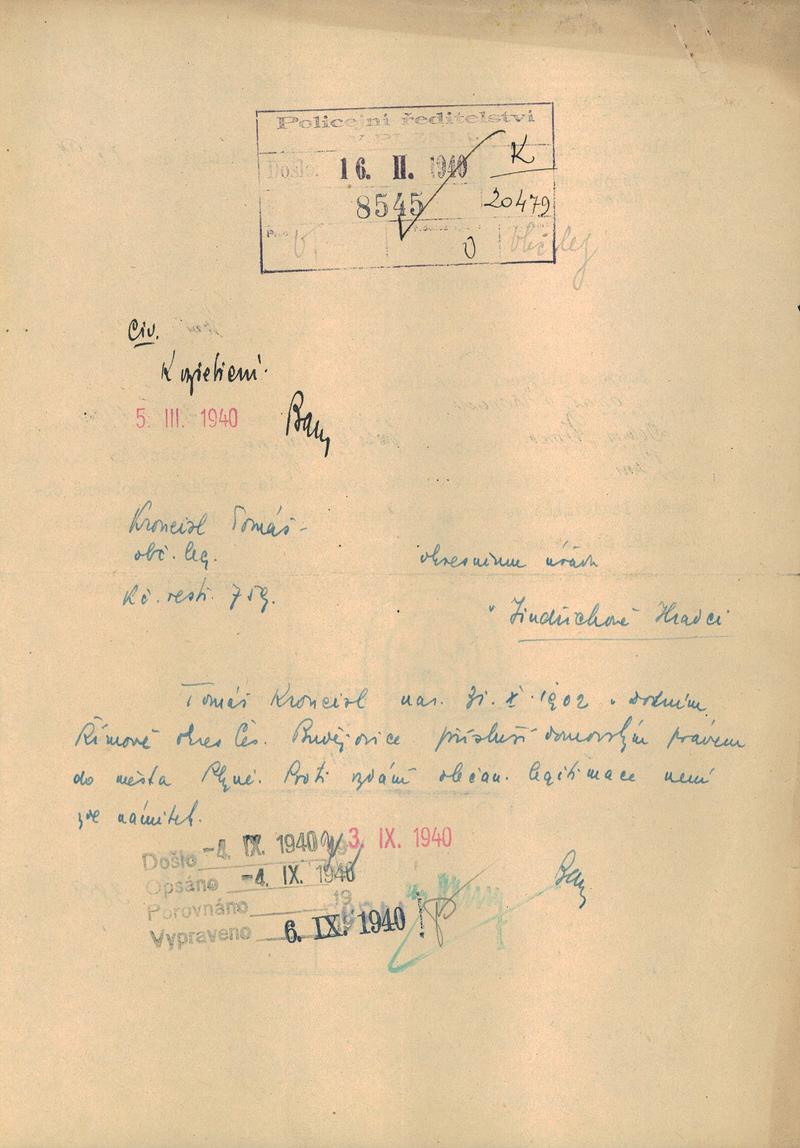 Policejní ředitelství
V PLZNI
Došlo: 16. II. 1940
K
20479
8545
0
Civ.
K zjištění.
5. III. 1940
Kroneisl Tomáš-
obč. leg.
okresnímu úřadu
Jindřichově Hradci
Tomáš Kroneisl nar. 31. X. 1902 v Dolním
Římově okres Čes. Budějovice přísluší domovským právem
do města Plzně. Proti vydání občan. legitimace není
zde námitek.
3. IX. 1940
Došlo -4. IX. 1940
Opsáno -4. IX. 1940
Porovnáno 19
Vypraveno 6. IX. 1940